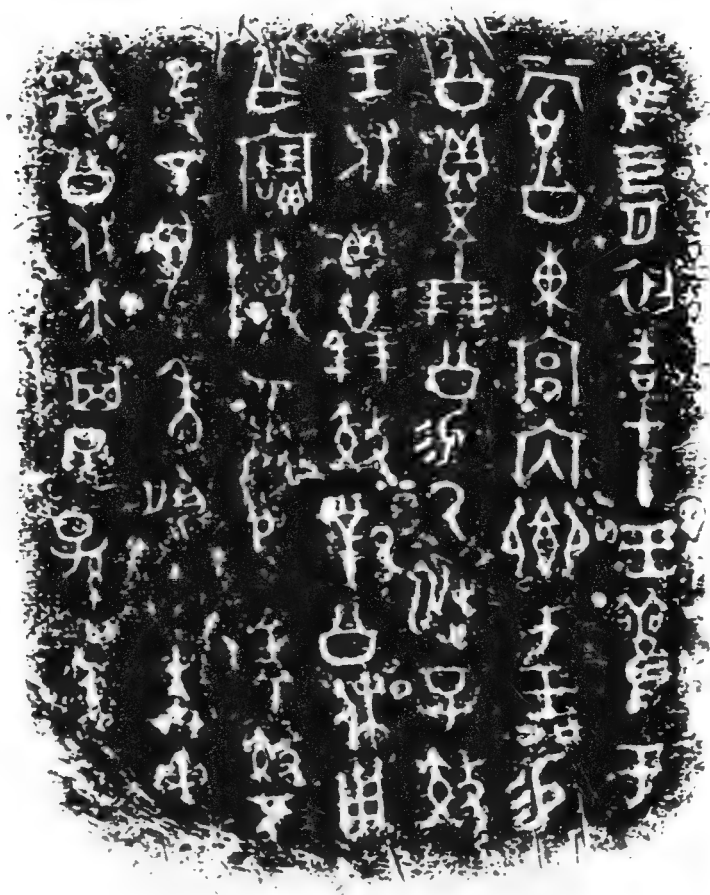 隹四月初吉甲午王雚于
嘗公東宮內鄉于王王易
公貝五十朋公易厥涉子效
王休貝廿朋效對公休用
乍寶尊彝烏虖效不
敢不萬年夙夜奔走
揚公休亦其子子孫孫永寶